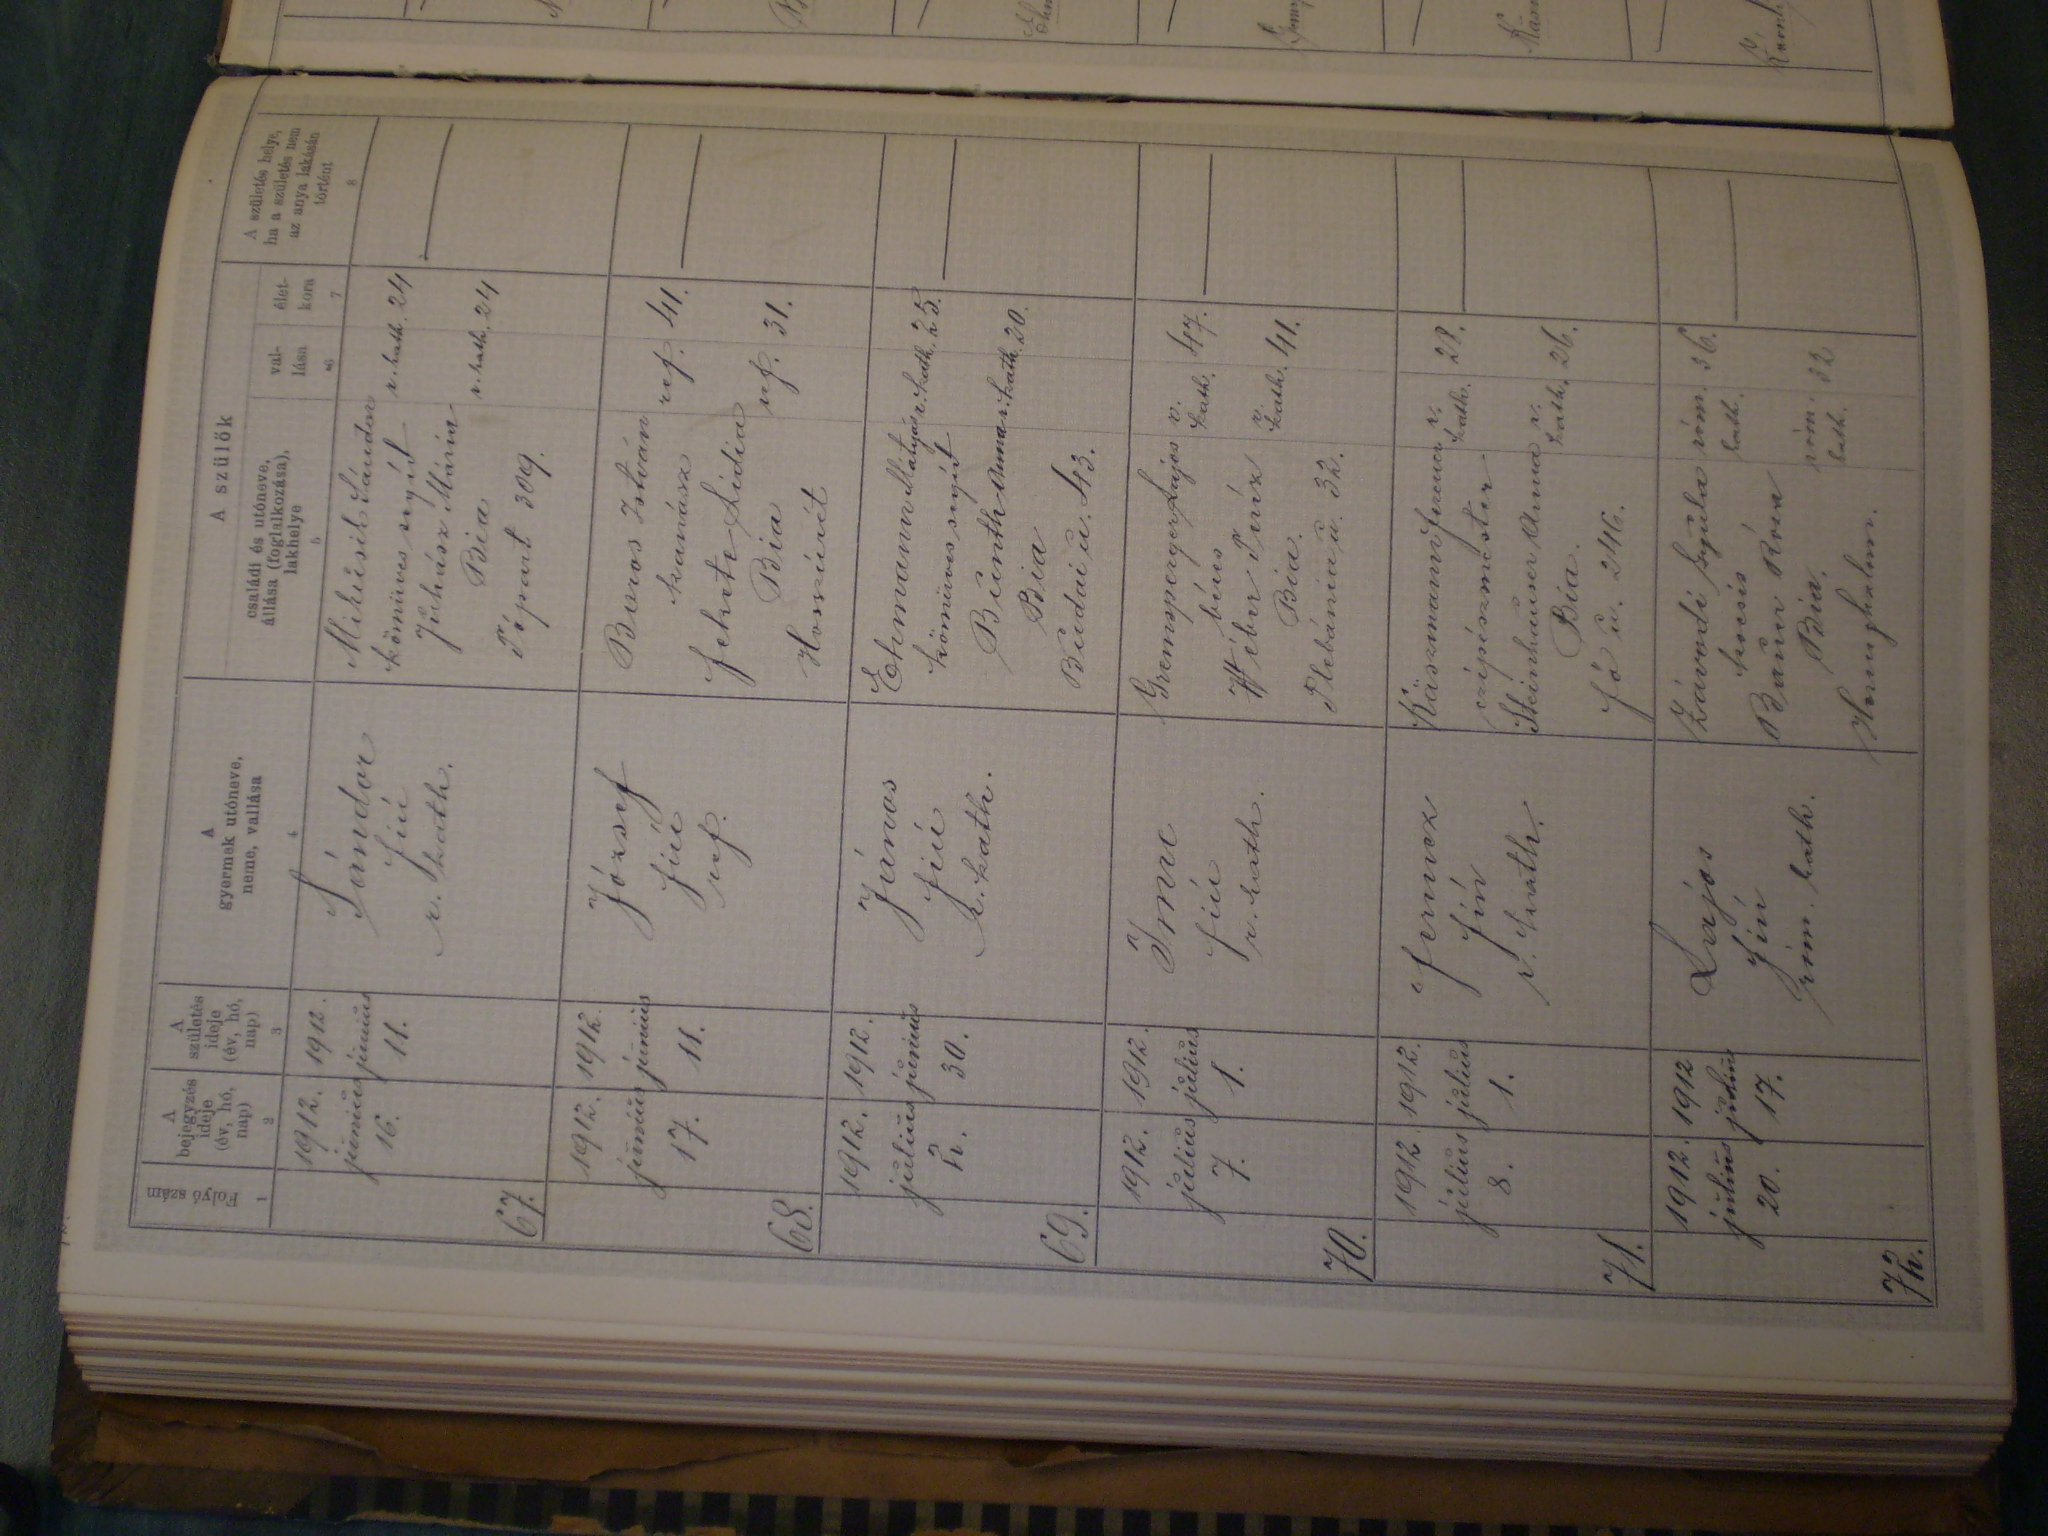 A szülök
Folyó szám
A bejegyzés ideje (év, hó, nap)
A születés ideje (év, hó, nap)
A gyermek utóneve, neme, vallása
családi és utóneve, állása (foglalkozása), lakhelye
vallása
életkora
A születés helye, ha a születés nem az anya lakásán történt
1
2
3
4
5
6
7
8
67.
1912.
június
16.
1912.
június
11.
Sándor
fiú
r. kath.
Sándor
kömüves
r. kath. 24
Juhász Mária
r. kath. 24
Bia
309.
68.
1912.
június
17.
1912.
június
11.
József
fiú
ref.
Boros István
ref. 41.
kanász
Fekete Lídia
ref. 31.
Bia
69.
1912.
július
2.
1912.
június
30.
János
fiú
r. kath.
Ehmann Mátyás
r. kath. 25.
kömüves
Anna
r. kath. 20.
Bia
Budai u. 43.
70.
1912.
július
7.
1912.
július
1.
Imre
fiú
r. kath.
Lajos
r. kath. 47.
béres
Teréz
r. kath. 41.
Bia.
Plebánia u. 32.
71.
1912.
július
8.
1912.
július
1.
Ferencz
fiú
r. kath.
Kászmann Ferencz
r. kath. 28.
czipészmester
Steinhauser Anna
r. kath. 26.
Bia.
Fő u. 246.
72.
1912.
július
20.
1912
július
17.
Lajos
fiú
róm. kath.
Závodi Gyula
róm. kath. 36.
kocsis
Bauer Róza
róm. kath. 32
Bia.